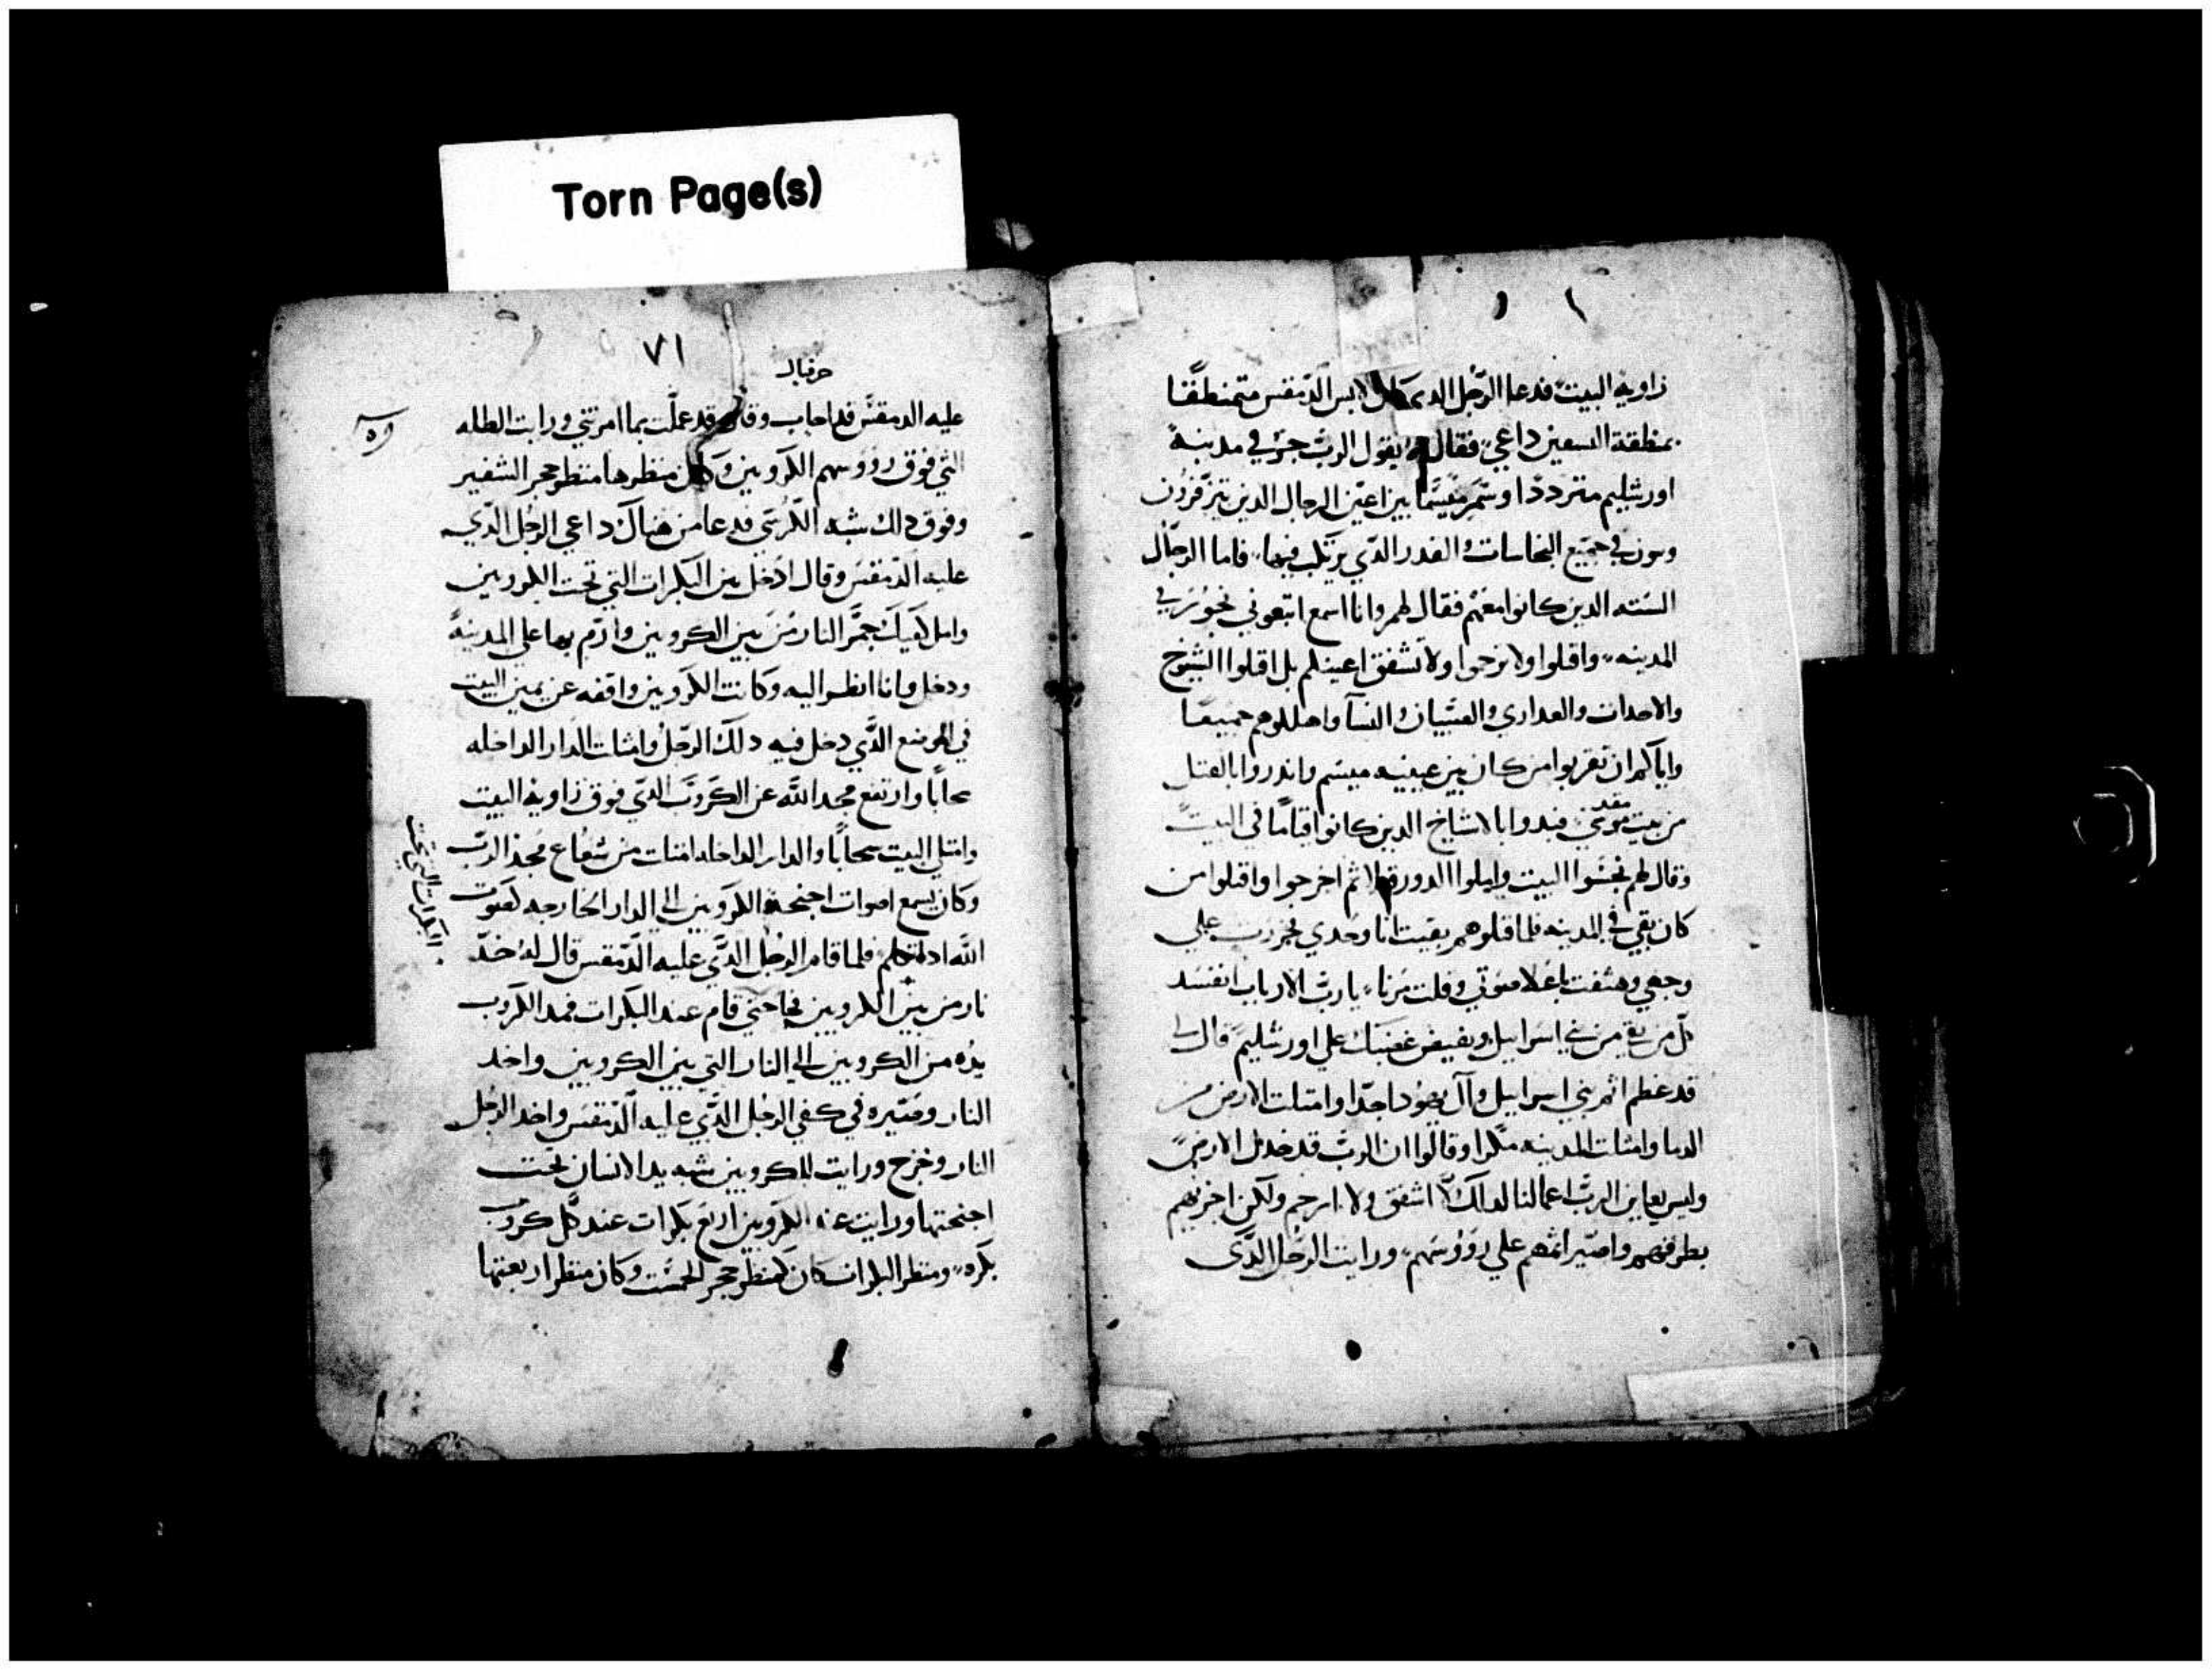 Torn Page(s)
زاوية البيت فدعا الرجل الدي كان لابس الدمقس متمنطقا
بمنطقة السفين داعي فقال له يقول الرب جز في مدينة
اورشليم مترددا وسم ميسما بين اعين الرجال الدين يتزفزون
في جميع النجاسات والقدر الدي يرتكب فيها فاما الرجال
السته الدين كانوا معهم فقال لهم وانا اسمع اتبعوني نجوز في
المدينه واقتلوا ولا ترحوا ولا تشفق اعينكم بل اقتلوا الشيوخ
والاحداث والعداري والصبيان والنسا واهللوهم جميعا
واياكم ان تقربوا من كان بين عينيه ميسم وابدروا بالقتل
من بيت مقدسي فبدوا بالاشياخ الدين كانوا قياما في البيت
وقال لهم نجسوا البيت واملوا الدور قتلا ثم اخرجوا واقتلوا من
كان بقي في المدينه فلما قتلوهم بقيت انا وحدي فخررت علي
وجهي وهتفت باعلا صوتي وقلت يارب الارباب اتفسد
كل من بقي من بني اسراييل وتفيض غضبك علي اورشليم قال لي
قد عظم اثم بني اسراييل وال يهودا جدا وامتلت الارض من
الدما وامتلت المدينه مكرا وقالوا ان الرب قد خدل الارض
وليس يعاين الرب اعمالنا لدلك لا اشفق ولا ارحم ولكن اجزيهم
بطرقهم واصير اثمهم علي رووسهم ورايت الرجل الدي
٧١
حزقيال
عليه الدمقس قد اجاب وقال قد عملت بما امرتني ورايت الظله
التي فوق رووسهم الكروبين وكان منظرها منظر حجر السفير
وفوق دلك شبه الكرسي فدعا من هناك داعي الرجل الدي
عليه الدمقس وقال ادخل بين البكرات التي تحت الكروبين
واملا كفيك جمر النار من بين الكروبين وارم بها علي المدينة
ودخل وانا انظر اليه وكانت الكروبين واقفه عن يمين البيت
في الموضع الدي دخل فيه دلك الرجل وامتلت الدار الداخله
سحابا وارتفع مجد الله عن الكروب الدي فوق زاوية البيت
وامتلي البيت سحابا والدار الداخله امتلت من شعاع مجد الرب
وكان يسمع اصوات اجنحة الكروبين الي الدار الخارجه كصوت
الله اد تكلم فلما قام الرجل الدي عليه الدمقس قال له خد
نار من بين الكروبين فجا حتي قام عند البكرات فمد الكروب
يده من الكروبين الي النار التي بين الكروبين واخد
النار وصيره في كفي الرجل الدي عليه الدمقس واخد الرجل
النار وخرج ورايت للكروبين شبه يد الانسان تحت
اجنحتها ورايت عند الكروبين اربع بكرات عند كل كروب
بكره ومنظر البكرات كان كمنظر حجر الحمست وكان منظر اربعتها
البكرات التي تحت